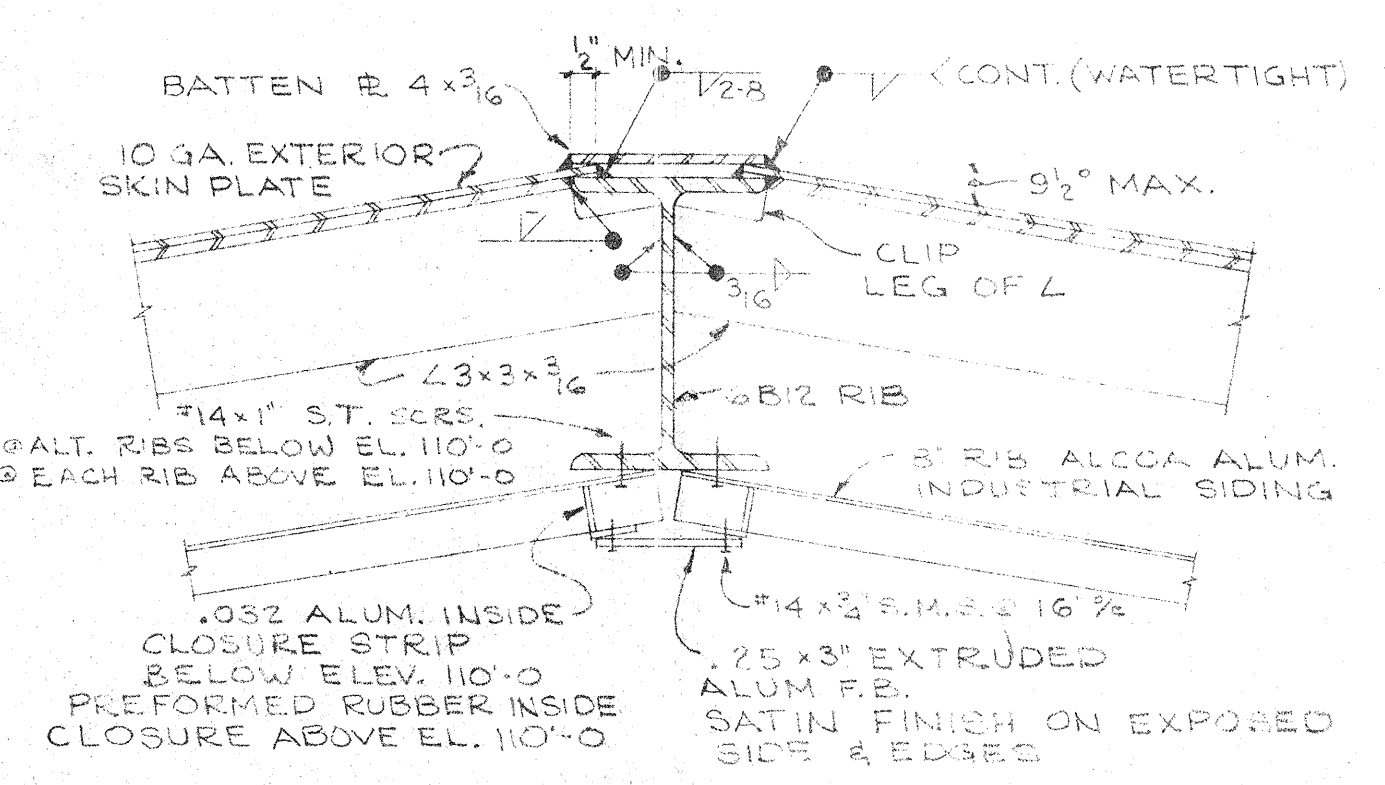 ½" MIN.
BATTEN ℄ 4 x 3/16
2-8
CONT. (WATERTIGHT)
10 GA. EXTERIOR
SKIN PLATE
9½° MAX.
CLIP
LEG OF ∠
3/16
∠3 x 3 x 3/16
6B12 RIB
#14 x 1" S.T. SCRS.
@ ALT. RIBS BELOW EL. 110'-0
@ EACH RIB ABOVE EL. 110'-0
8" RIB ALCOA ALUM.
INDUSTRIAL SIDING
.032 ALUM. INSIDE
CLOSURE STRIP
BELOW ELEV. 110'-0
PREFORMED RUBBER INSIDE
CLOSURE ABOVE EL. 110'-0
#14 x ¾" S.M.S. @ 16" o/c
.25 x 3" EXTRUDED
ALUM F.B.
SATIN FINISH ON EXPOSED
SIDE & EDGES